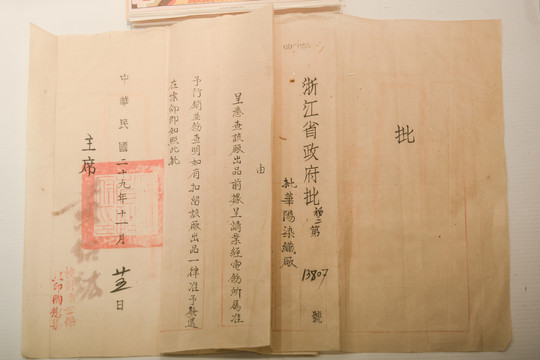 批
浙江省政府批 第13807號
批華陽染織廠
由
呈悉查該廠出品前據呈請業經電飭所屬准
予行銷並飭查明如有扣留該廠出品一律准予發還
在案仰即知照此批
中華民國二十九年十一月 日
主席